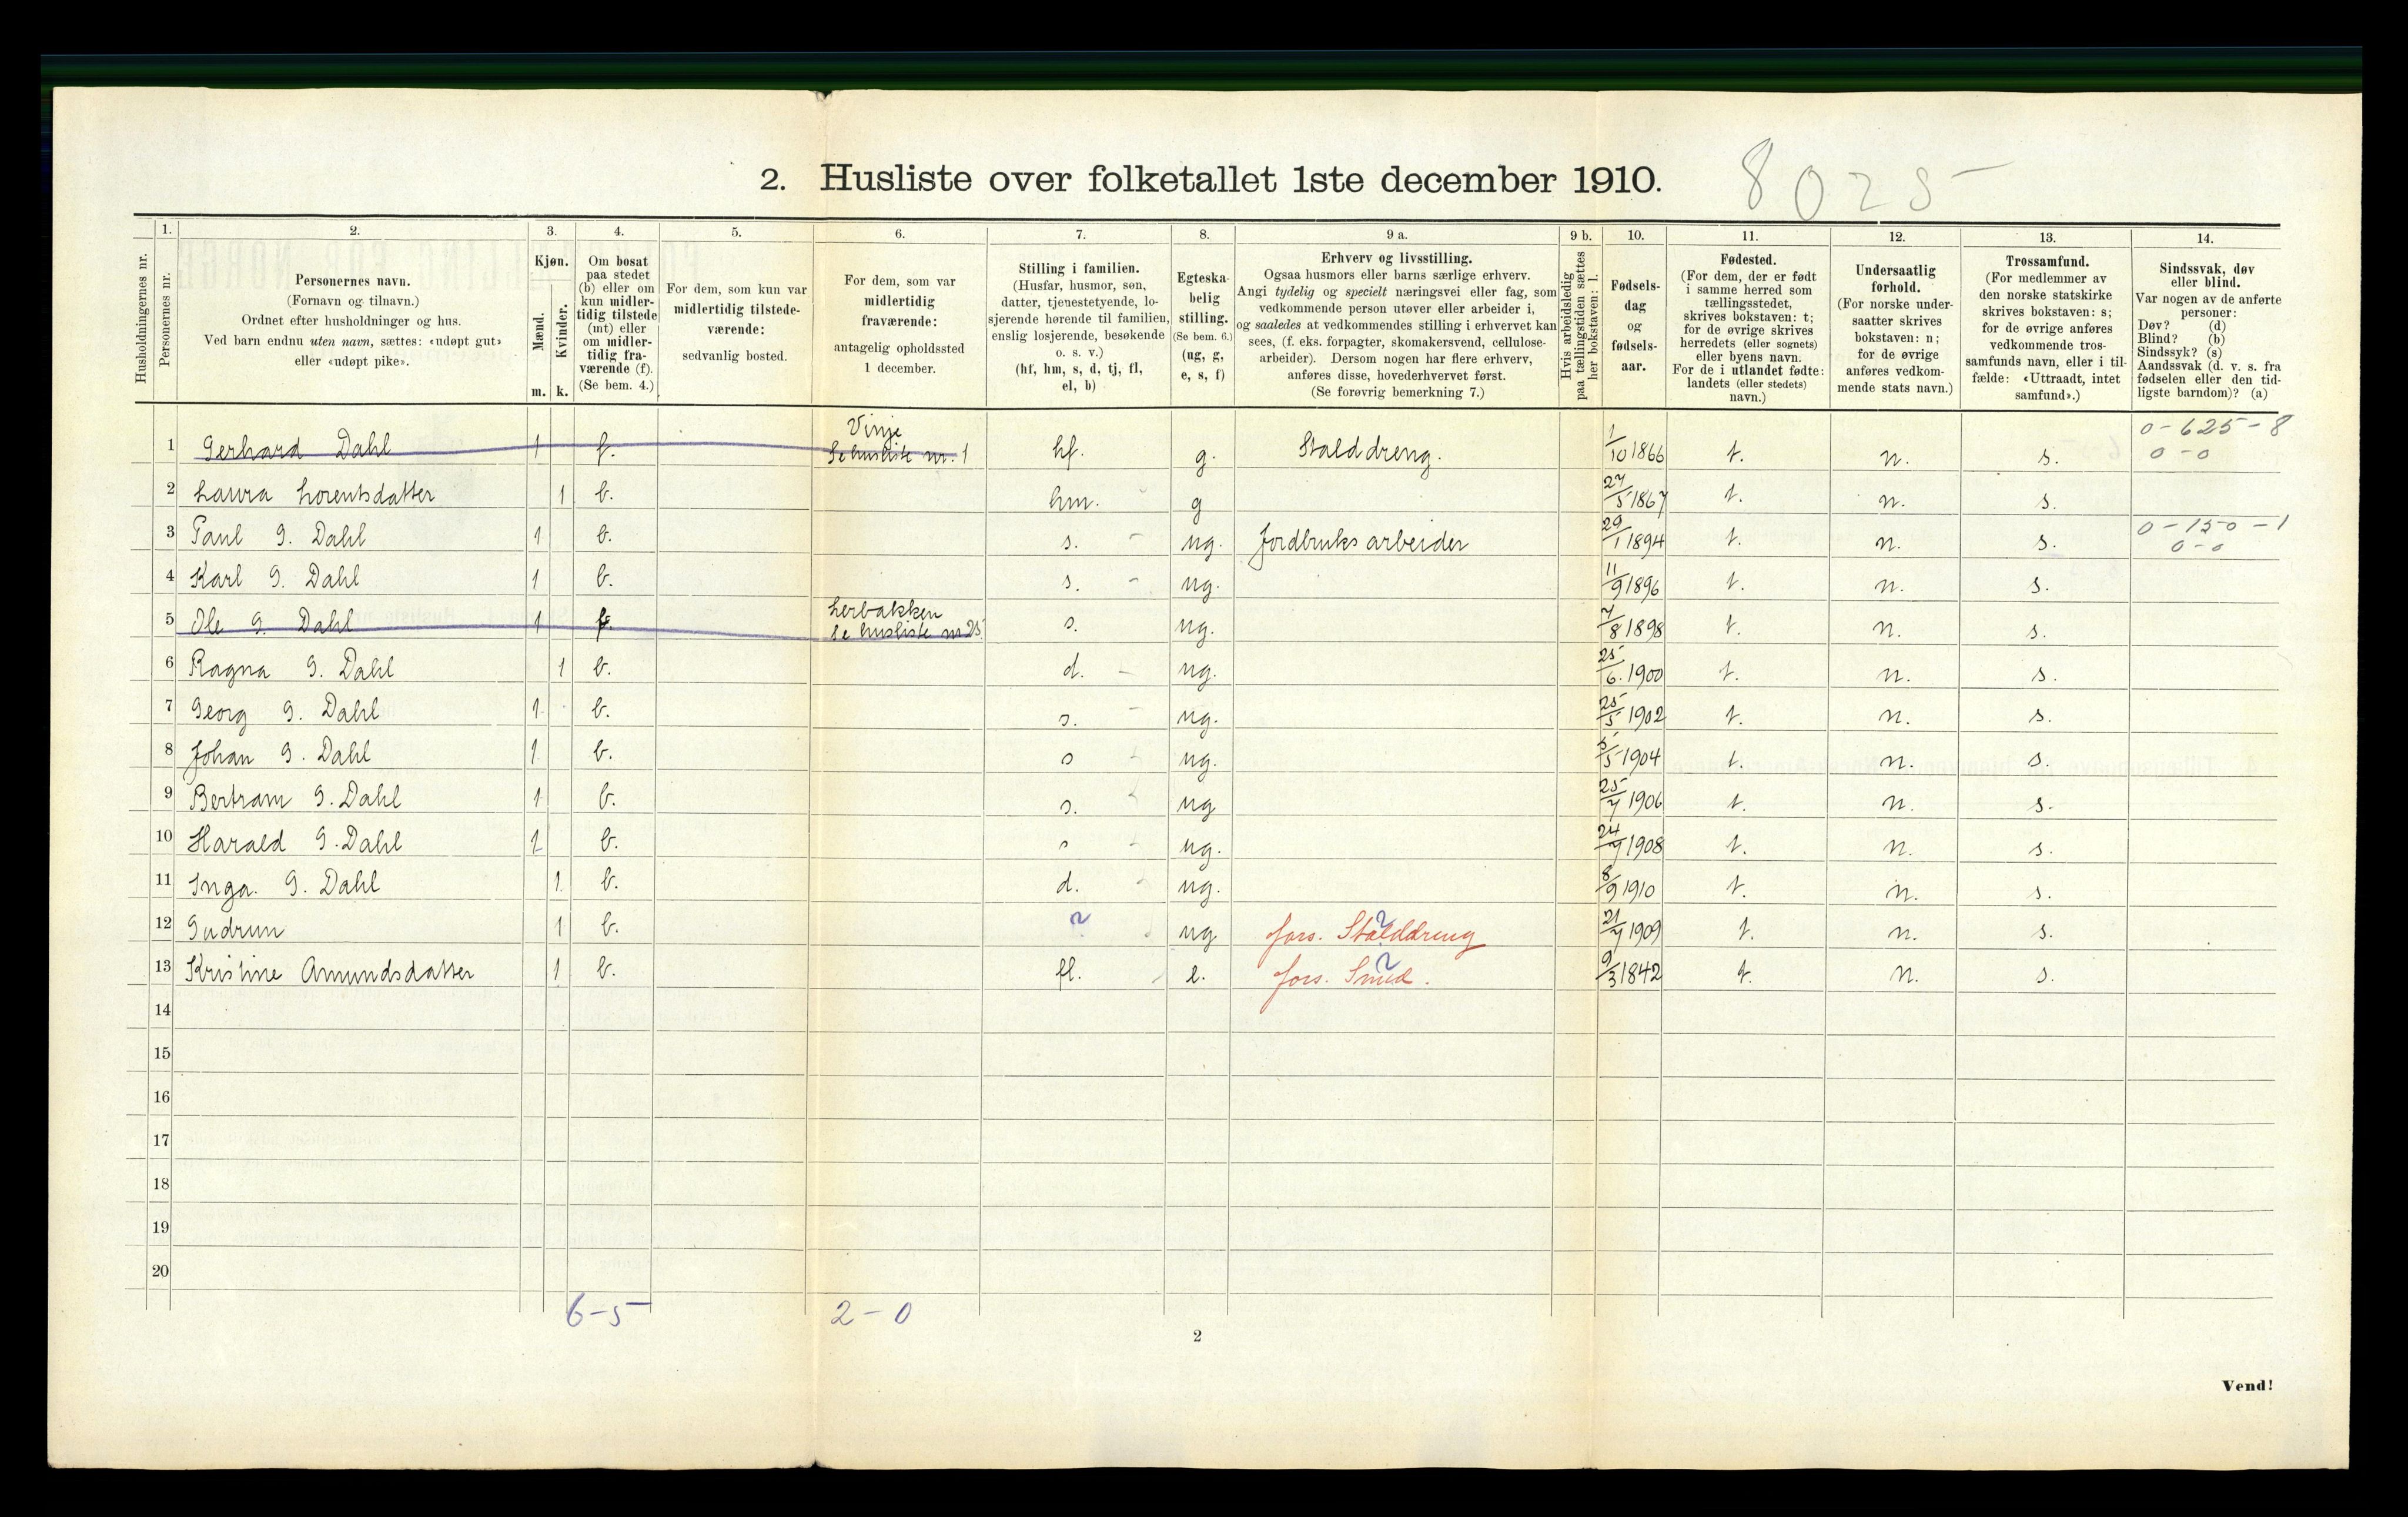 2. Husliste over folketallet 1ste december 1910.
8025
Husholdningernes nr.
1. Personernes nr.
2. Personernes navn.
(Fornavn og tilnavn.)
Ordnet efter husholdninger og hus.
Ved barn endnu uten navn, sættes: «udøpt gut»
eller «udøpt pike».
3. Kjøn.
Mænd. m.
Kvinder. k.
4. Om bosat
paa stedet
(b) eller om
kun midler-
tidig tilstede
(mt) eller
om midler-
tidig fra-
værende (f).
(Se bem. 4.)
5. For dem, som kun var
midlertidig tilstede-
værende:
sedvanlig bosted.
6. For dem, som var
midlertidig
fraværende:
antagelig opholdssted
1 december.
7. Stilling i familien.
(Husfar, husmor, søn,
datter, tjenestetyende, lo-
sjerende hørende til familien,
enslig losjerende, besøkende
o. s. v.)
(hf, hm, s, d, tj, fl,
el, b)
8. Egteska-
belig
stilling.
(Se bem. 6.)
(ug, g,
e, s, f)
9 a. Erhverv og livsstilling.
Ogsaa husmors eller barns særlige erhverv.
Angi tydelig og specielt næringsvei eller fag, som
vedkommende person utøver eller arbeider i,
og saaledes at vedkommendes stilling i erhvervet kan
sees, (f. eks. forpagter, skomakersvend, cellulose-
arbeider). Dersom nogen har flere erhverv,
anføres disse, hovederhvervet først.
(Se forøvrig bemerkning 7.)
9 b. Hvis arbeidsledig
paa tællingstiden sættes
her bokstaven: l.
10. Fødsels-
dag
og
fødsels-
aar.
11. Fødested.
(For dem, der er født
i samme herred som
tællingsstedet,
skrives bokstaven: t;
for de øvrige skrives
herredets (eller sognets)
eller byens navn.
For de i utlandet fødte:
landets (eller stedets)
navn.)
12. Undersaatlig
forhold.
(For norske under-
saatter skrives
bokstaven: n;
for de øvrige
anføres vedkom-
mende stats navn.)
13. Trossamfund.
(For medlemmer av
den norske statskirke
skrives bokstaven: s;
for de øvrige anføres
vedkommende tros-
samfunds navn, eller i til-
fælde: «Uttraadt, intet
samfund».)
14. Sindssvak, døv
eller blind.
Var nogen av de anførte
personer:
Døv? (d)
Blind? (b)
Sindssyk? (s)
Aandssvak (d. v. s. fra
fødselen eller den tid-
ligste barndom)? (a)
1 Gerhard Dahl 1 f. Vinje Se husliste nr. 1 hf. g. Stalddreng. 1/10 1866 t. n. s. 0-625-8 0-0
2 Laura Lorentsdatter 1 b. hm. g 27/5 1867 t. n. s.
3 Paul G. Dahl 1 b. s. - ug. Jordbruks arbeider 29/1 1894 t. n. s. 0-150-1 0-0
4 Karl G. Dahl 1 b. s. - ug. 11/9 1896 t. n. s.
5 Ole G. Dahl 1 f. Lerbakken Se husliste nr 25. s. ug. 7/8 1898 t. n. s.
6 Ragna G. Dahl 1 b. d. - ug. 25/6. 1900 t. n. s.
7 Georg G. Dahl 1 b. s. - ug. 25/5 1902 t. n. s.
8 Johan G. Dahl 1 b. s ug. 5/5 1904 t. n. s.
9 Bertram G. Dahl 1 b. s. ug 25/7 1906 t. n. s.
10 Harald G. Dahl 1 b. s ug. 24/7 1908 t. n. s.
11 Inga. G. Dahl 1 b. d. ug. 8/9 1910 t. n. s.
12 Gudrun 1 b. ? ug fors. Stalddreng ? 21/7 1909 t. n. s.
13 Kristine Amundsdatter 1 b. fl. e. fors. Smed. ? 9/3 1842 t. n. s.
14
15
16
17
18
19
20
6-5 2-0
2
Vend!